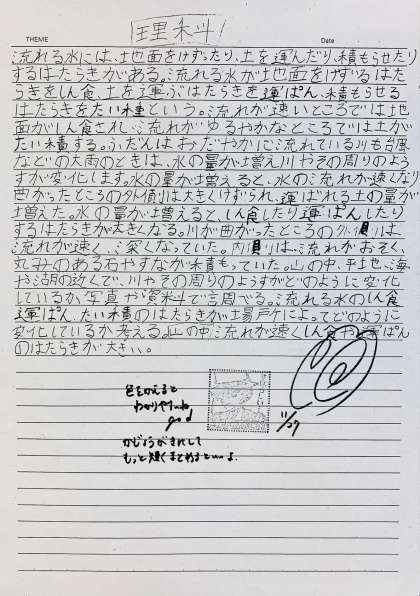 理科
THEME
Date
流れる水には、地面をけずったり、土を運んだり、積もらせたり
するはたらきがある。流れる水が地面をけずるはた
らきをしん食、土を運ぶはたらきを運ぱん、積もらせる
はたらきをたい積という。流れが速いところでは地
面がしん食され、流れがゆるやかなところでは土が
たい積する。ふだんはおだやかに流れている川も台風
などの大雨のときは、水の量が増え川やその周りのよう
すが変化します。水の量が増えると、水の流れが速くなり
曲がったところの外側は大きくけずられ、運ばれる土の量が
増えた。水の量が増えると、しん食したり運ぱんしたり
するはたらきが大きくなる。川が曲がったところの外側は、
流れが速く、深くなっていた。内側は、流れがおそく、
丸みのある石やすなが積もっていた。山の中、平地、海
や湖の近くで、川やその周りのようすがどのように変化
しているか、写真や資料で調べる。流れる水のしん食
運ぱん、たい積のはたらきが場所によってどのように
変化しているか考える。山の中流れが速くしん食や運ぱん
のはたらきが大きい。
色をかえると
わかりやすいね
good
11/27
かじょうがきにして
もっと短くまとめるといいよ。